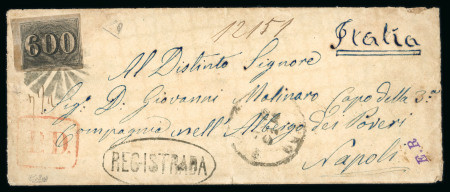 600
12151
Italia
Al Distinto Signore
Sig: D: Giovanni Molinaro Capo della 3ª
Compagnia nell' Albergo dei Poveri
Napoli
P.D.
REGISTRADA